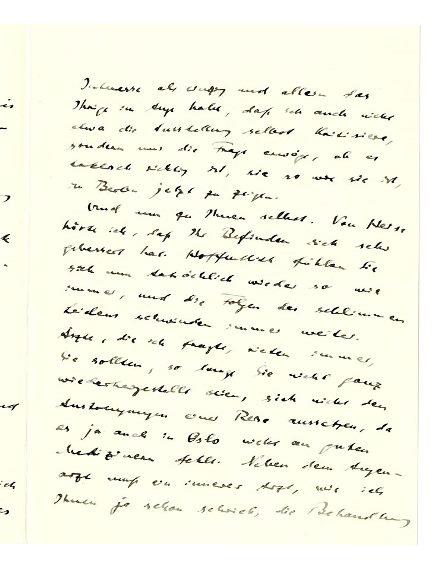 Interesse als einzig und allein das
Ihrige im Auge habe, daß ich auch nicht
etwa die Ausstellung selbst kritisiere,
sondern nur die Frage erwäge, ob es
taktisch richtig ist, sie so wie sie ist,
in Berlin jetzt zu zeigen.
Und nun zu Ihnen selbst. Von
hörte ich, daß Ihr Befinden sich sehr
gebessert hat. Hoffentlich fühlen Sie
sich nun tatsächlich wieder so wie
immer, und die Folgen des schlimmen
Leidens schwinden immer weiter.
Ärzte, die ich fragte, rieten immer,
Sie sollten, so lange Sie nicht ganz
wiederhergestellt seien, sich nicht den
Anstrengungen einer Reise aussetzen, da
es ja auch in Oslo nicht an guten
Medizinern fehlt. Neben dem Augen-
arzt muß ein innerer Arzt, wie ich
Ihnen ja schon schrieb, die Behandlung